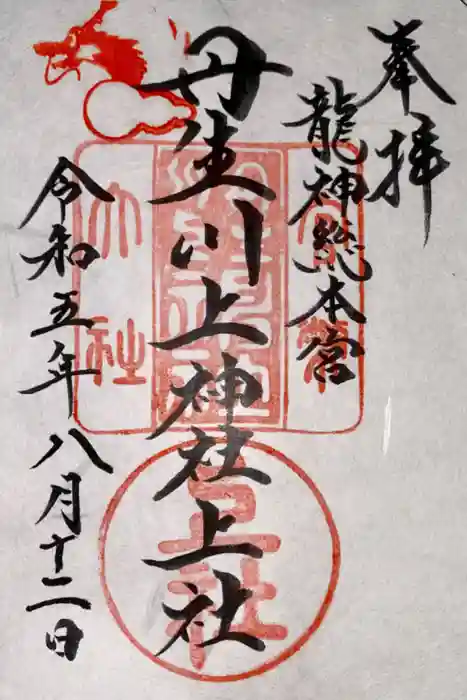 奉拝
龍神総本宮
丹生川上神社上社
令和五年八月十二日
上社